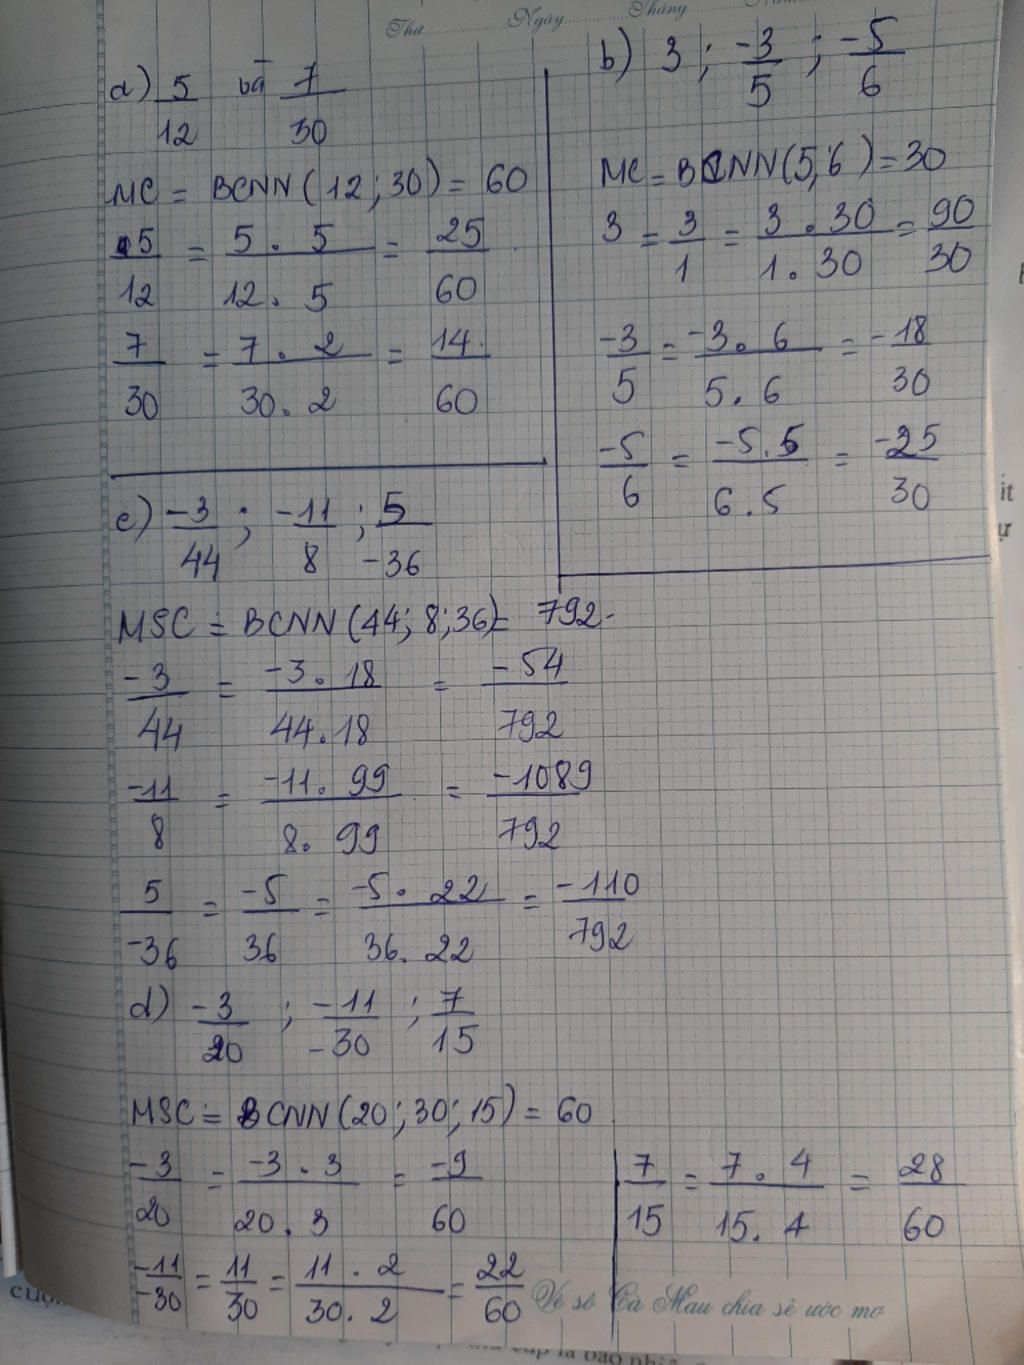 Thứ Ngày Tháng
a) 5/12 và 7/30
MC = BCNN(12;30) = 60
5/12 = 5.5/12.5 = 25/60
7/30 = 7.2/30.2 = 14/60
b) 3; -3/5; -5/6
MC = BCNN(5;6) = 30
3 = 3/1 = 3.30/1.30 = 90/30
-3/5 = -3.6/5.6 = -18/30
-5/6 = -5.5/6.5 = -25/30
c) -3/44; -11/8; 5/-36
MSC = BCNN(44;8;36) = 792
-3/44 = -3.18/44.18 = -54/792
-11/8 = -11.99/8.99 = -1089/792
5/-36 = -5/36 = -5.22/36.22 = -110/792
d) -3/20; -11/-30; 7/15
MSC = BCNN(20;30;15) = 60
-3/20 = -3.3/20.3 = -9/60
-11/-30 = 11/30 = 11.2/30.2 = 22/60
7/15 = 7.4/15.4 = 28/60
Vé số Cà Mau chia sẻ ước mơ